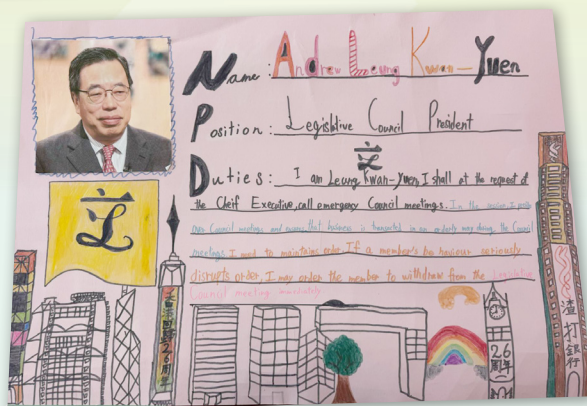 Name: Andrew Leung Kwan-Yuen
Position: Legislative Council President
立
Duties: I am Leung Kwan-Yuen, I shall at the request of
the Cheif Executive, call emergency Council meetings. In the
over Council meetings and ensure that business is transacted in an orderly way during the Council
meetings I need to maintains order. If a member's behaviour seriously
disrupts order, I may order the member to withdraw from the Legislative
Council meeting immediately
立
26
周年
渣打銀行
26周年